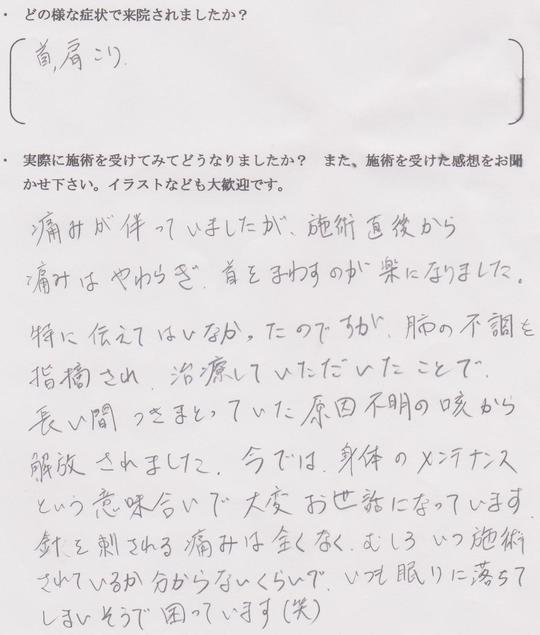 ・ どの様な症状で来院されましたか？
首,肩こり.
・ 実際に施術を受けてみてどうなりましたか？ また、施術を受けた感想をお聞
かせ下さい。イラストなども大歓迎です。
痛みが伴っていましたが、施術直後から
痛みはやわらぎ、首をまわすのが楽になりました。
特に伝えてはいなかったのですが、肺の不調を
指摘され、治療していただいたことで、
長い間つきまとっていた原因不明の咳から
解放されました。今では、身体のメンテナンス
という意味合いで大変お世話になっています。
針を刺される痛みは全くなく、むしろいつ施術
されているか分からないくらいで、いつも眠りに落ちて
しまいそうで困っています(笑)